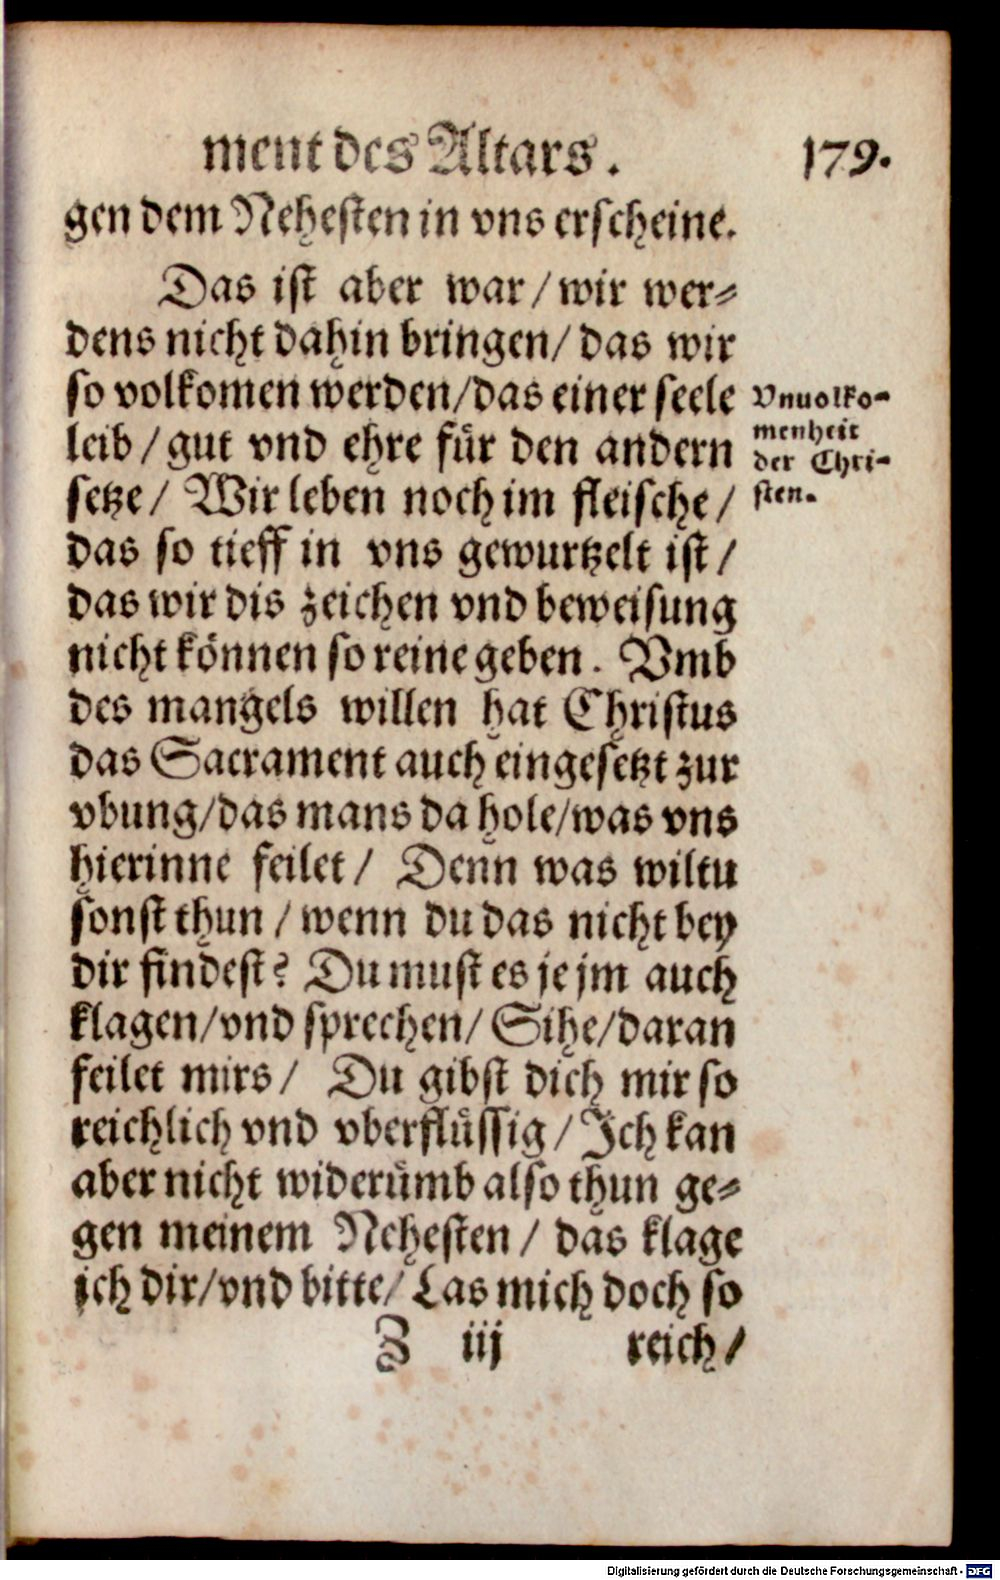 ment des Altars. 179.
gen dem Nehesten in vns erscheine.
Das ist aber war / wir wer⸗
dens nicht dahin bringen / das wir
so volkomen werden / das einer seele
leib / gut vnd ehre für den andern
setze / Wir leben noch im fleische /
das so tieff in vns gewurtzelt ist /
das wir dis zeichen vnd beweisung
nicht können so reine geben. Vmb
des mangels willen hat Christus
das Sacrament auch eingesetzt zur
vbung / das mans da hole / was vns
hierinne feilet / Denn was wiltu
sonst thun / wenn du das nicht bey
dir findest? Du must es je jm auch
klagen / vnd sprechen / Sihe / daran
feilet mirs / Du gibst dich mir so
reichlich vnd vberflüssig / Ich kan
aber nicht widerümb also thun ge⸗
gen meinem Nehesten / das klage
ich dir / vnd bitte / Las mich doch so
Z iij reich /
Vnuolko⸗
menheit
der Chri⸗
sten.
Digitalisierung gefördert durch die Deutsche Forschungsgemeinschaft - DFG